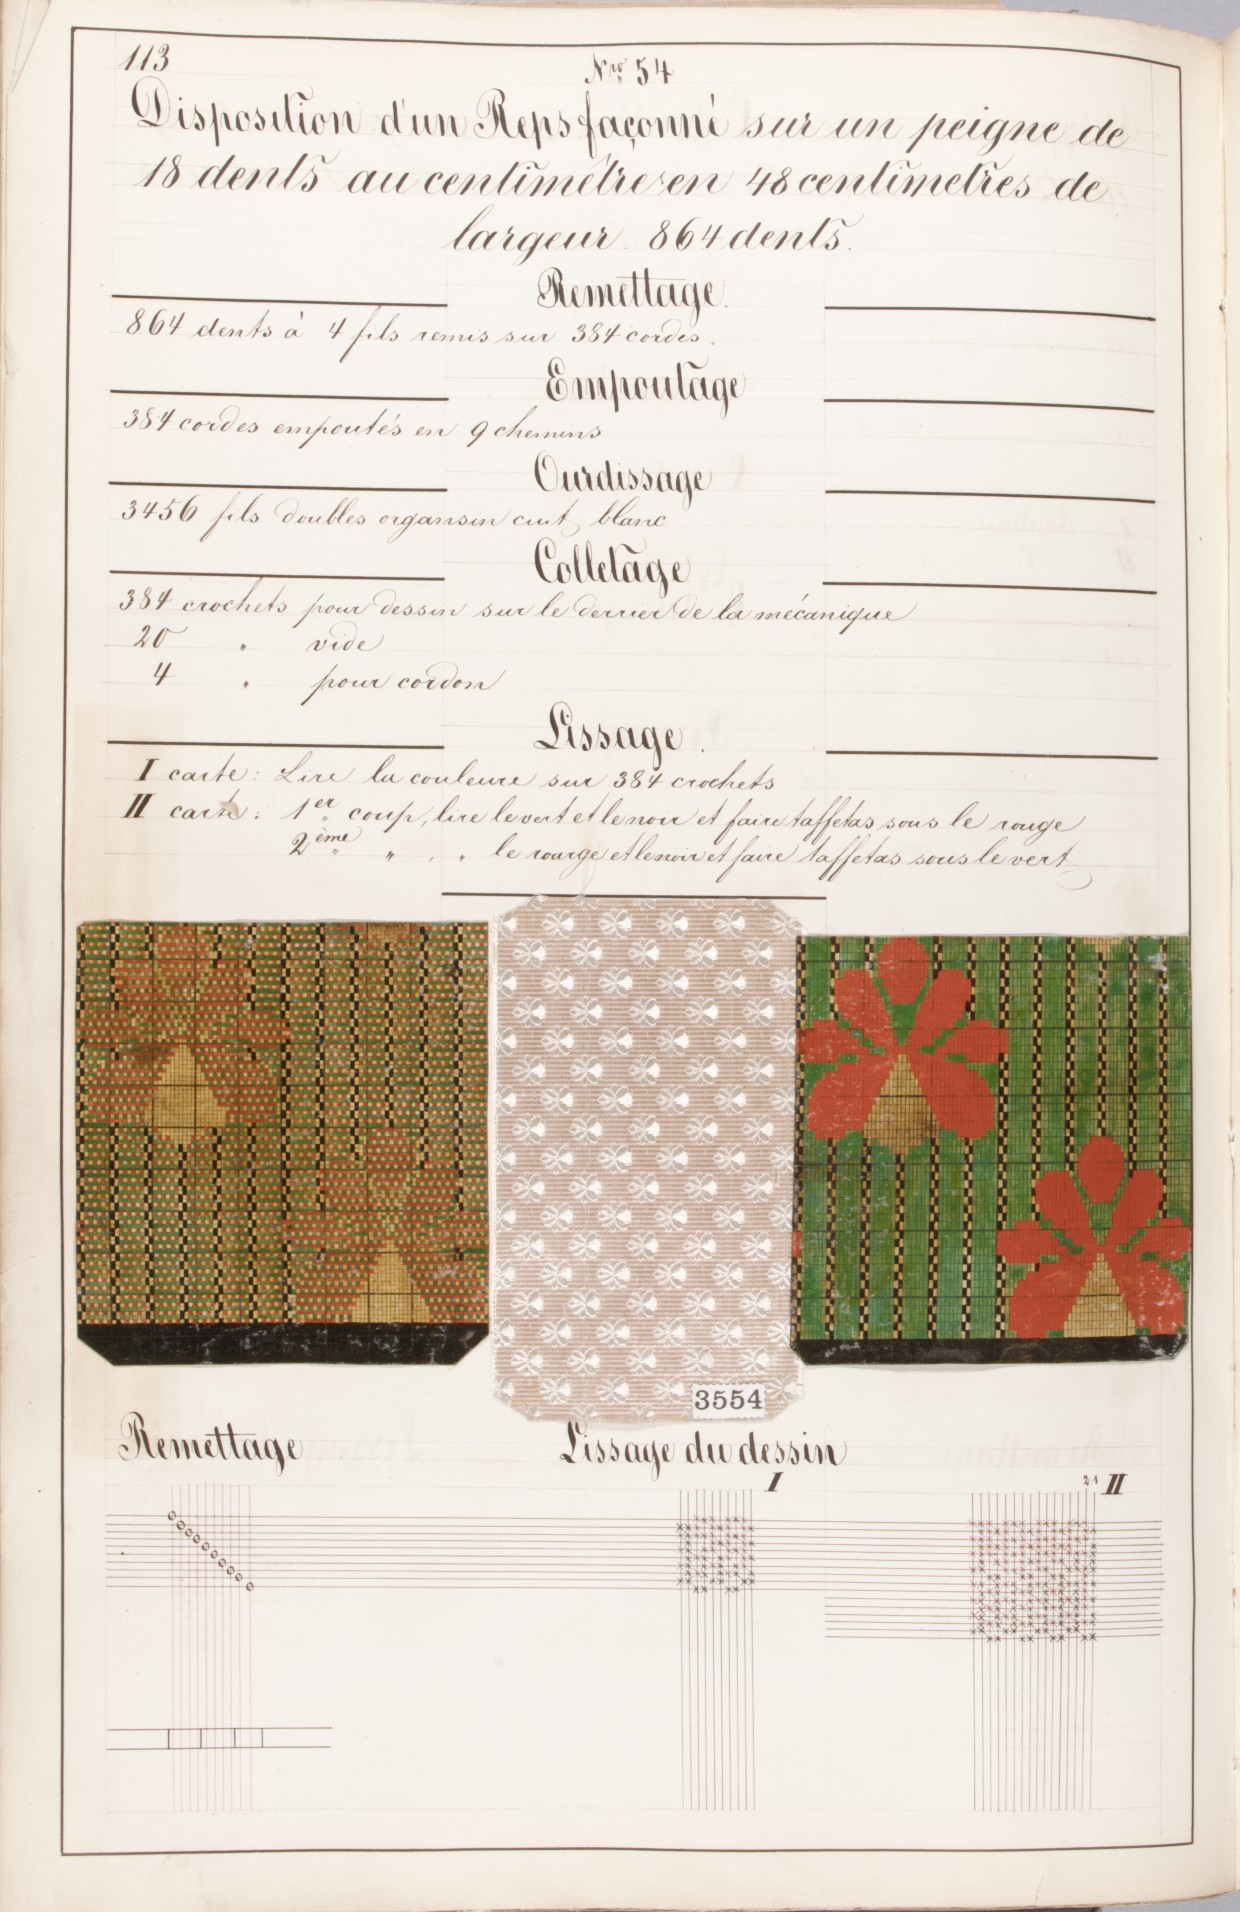 113
Nro 54
Disposition d'un Reps façonné sur un peigne de
18 dents au centimètre en 48 centimètres de
largeur. 864 dents.
Remettage.
864 dents à 4 fils remis sur 384 cordes.
Empoutage
384 cordes empoutés en 9 chemins
Ourdissage
3456 fils doubles organsin cuit blanc
Colletage
384 crochets pour dessin sur le derrier de la mécanique
20 " vide
4 " pour cordon
Lissage.
I carte: Lire la couleure sur 384 crochets
II carte: 1er coup, lire le vert et le noir et faire taffetas sous le rouge
2ème " " , " le rouge et le noir et faire taffetas sous le vert
3554
Remettage
Lissage du dessin
I
21 II